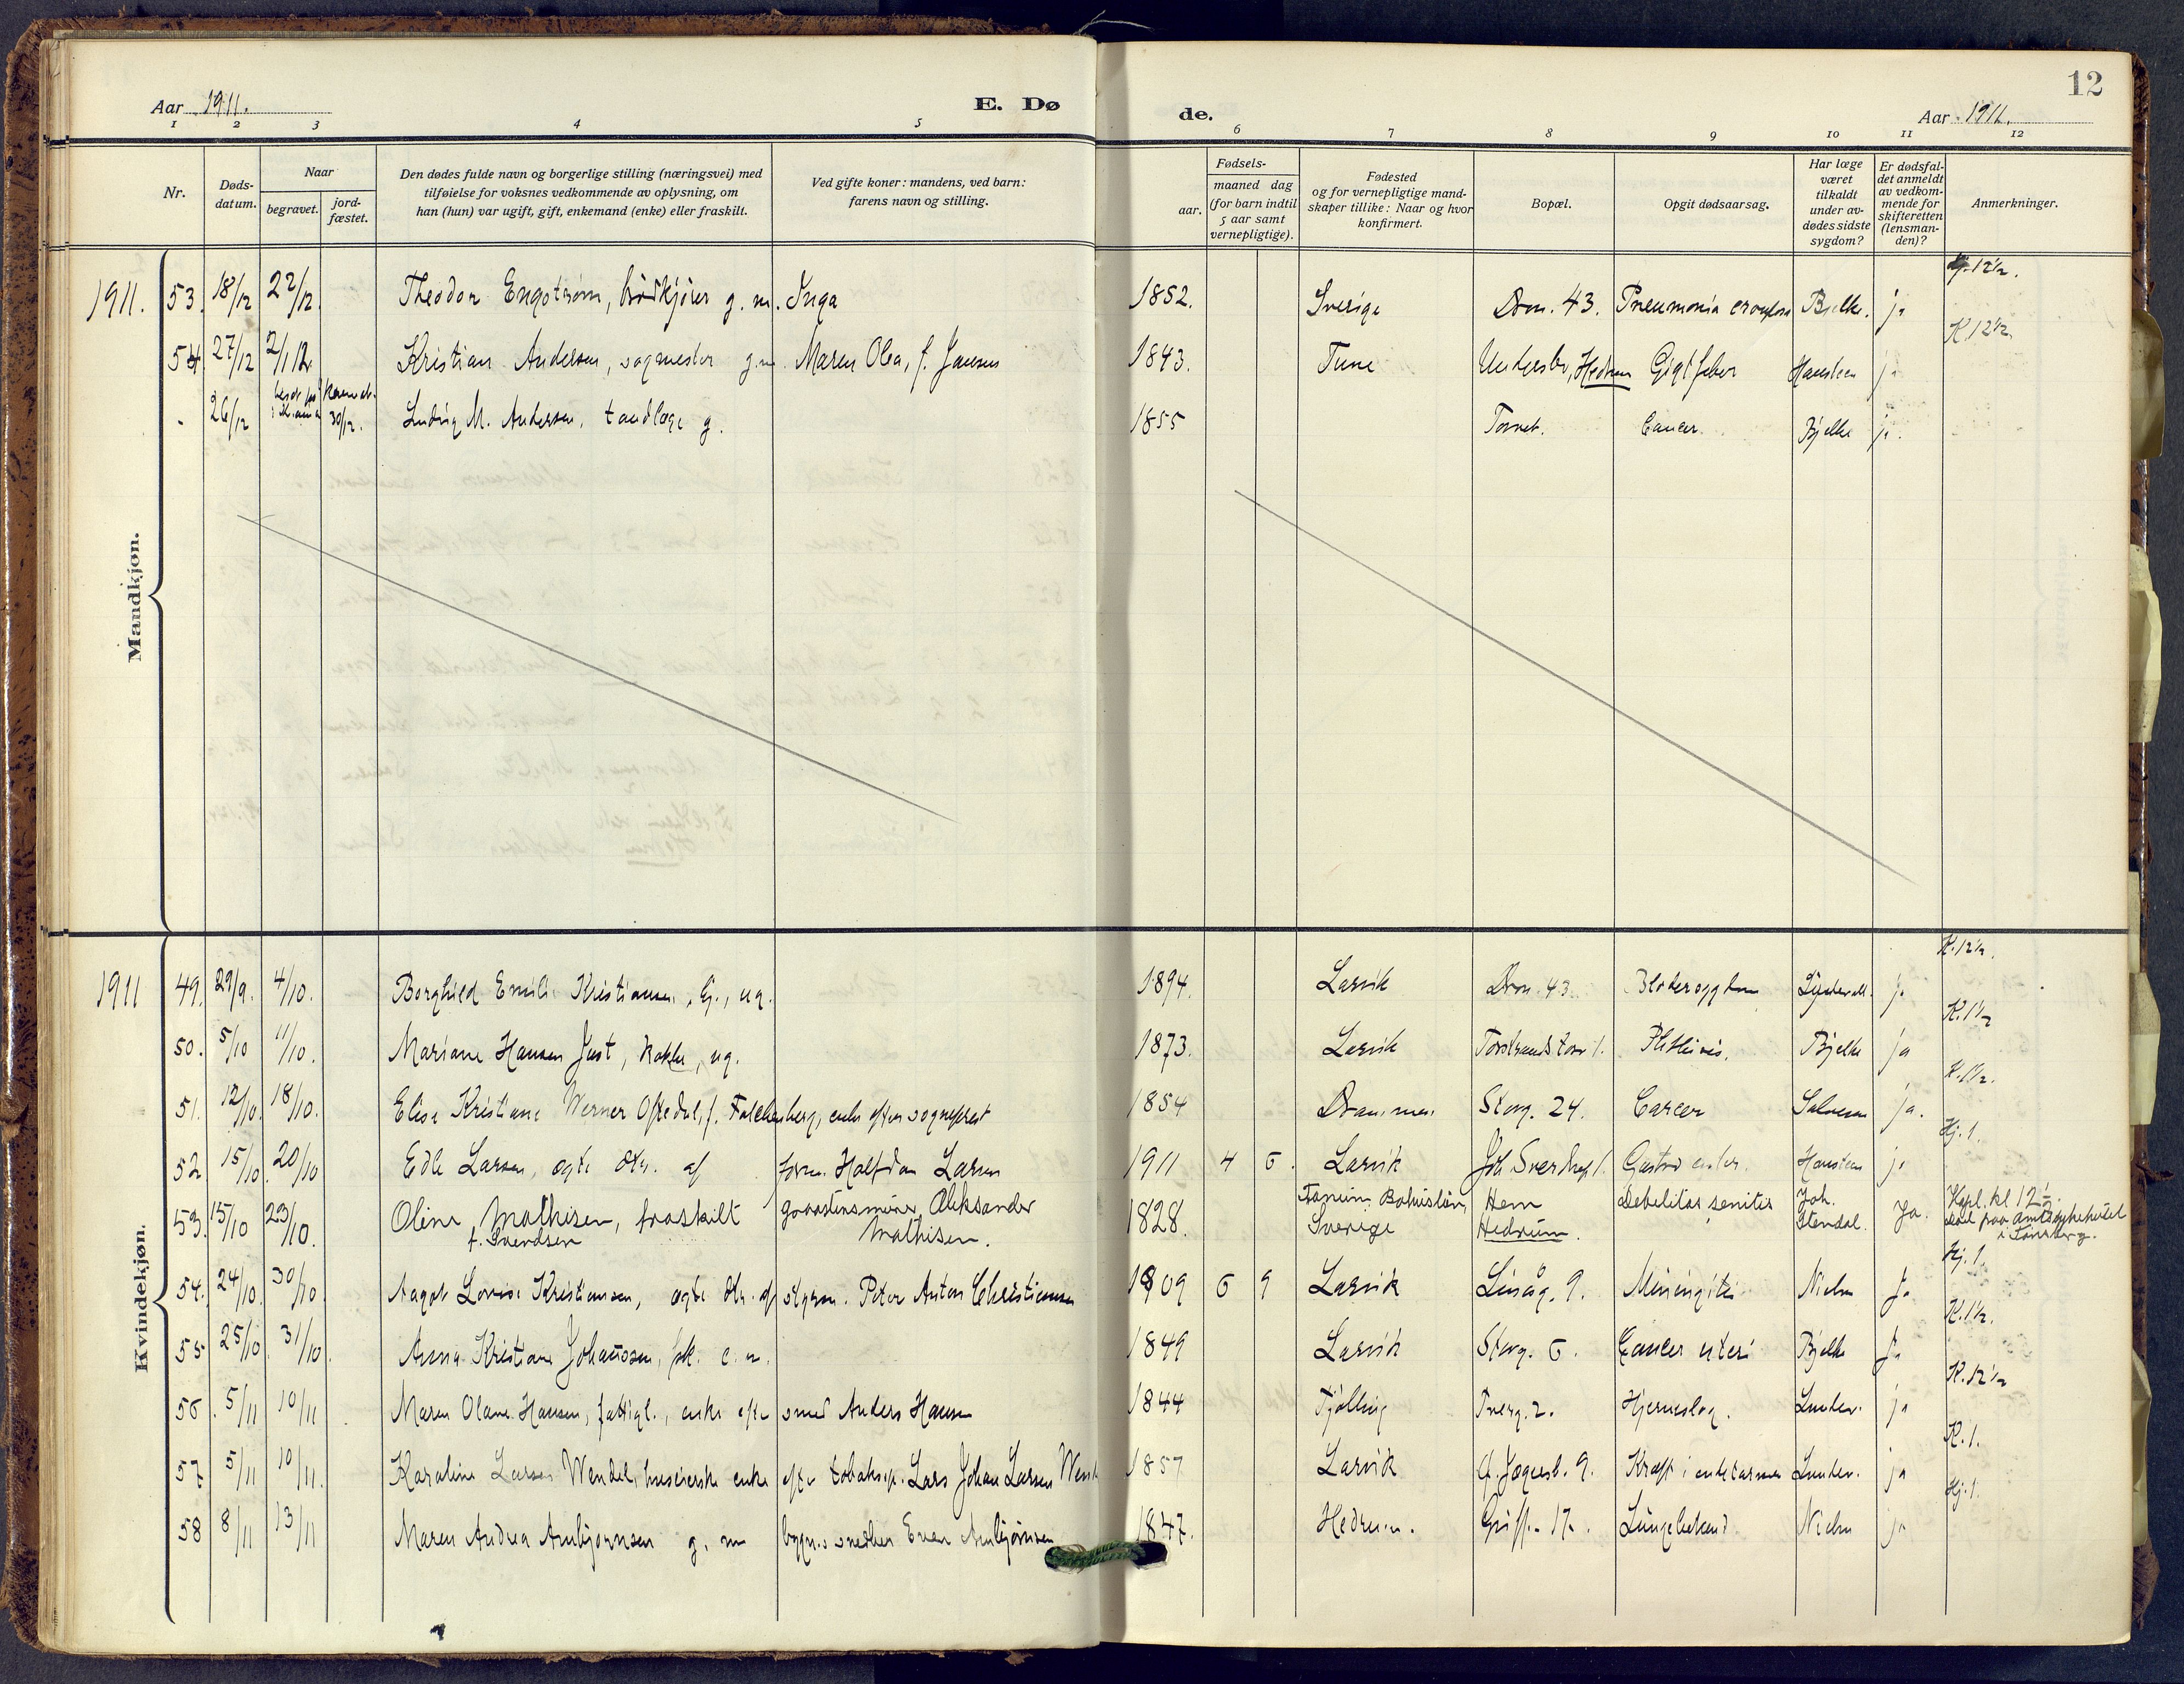 Aar 1911.
E. Dø
de.
Aar 1911.
12
1 2 3 4 5 6 7 8 9 10 11 12
Nr.
Døds-
datum.
Naar
begravet.
jord-
fæstet.
Den dødes fulde navn og borgerlige stilling (næringsvei) med
tilføielse for voksnes vedkommende av oplysning, om
han (hun) var ugift, gift, enkemand (enke) eller fraskilt.
Ved gifte koner: mandens, ved barn:
farens navn og stilling.
Fødsels-
aar.
maaned dag
(for barn indtil
5 aar samt
vernepligtige).
Fødested
og for vernepligtige mand-
skaper tillike: Naar og hvor
konfirmert.
Bopæl.
Opgit dødsaarsag.
Har læge
været
tilkaldt
under av-
dødes sidste
sygdom?
Er dødsfal-
det anmeldt
av vedkom-
mende for
skifteretten
(lensman-
den)?
Anmerkninger.
Mandkjøn.
1911. 53. 18/12 22/12. Theodor Engstrøm, brødkjører g. m. Inga 1852. Sverige Dron. 43. Pneumonia crouposa Bjelke. ja 12½.
54 27/12 2/1 12. Kristian Andersen, sagmester g. m. Maren Olea, f. Jansen 1843. Tune Undersbo, Hedrum Gigtfeber Hansteen ja K 12½.
26/12 30/12. Ludvig M. Andersen, tandlæge g. 1855 Torvet. Cancer. Bjelke ja.
Kvindekjøn.
1911 49. 29/9. 4/10. Borghild Emilie Kristiansen, ug. 1894. Larvik Dron. 43. Blodersygdom ja K. 12½.
50. 5/10 11/10. Mariane Hansen Just, kokke, ug. 1873. Larvik Torstrandstorv 1. Phthisis. Bjelke ja K. 1½
51. 12/10. 18/10. Elise Kristiane Werner Oftedal, f. Falchenberg, enke efter sogneprest 1854 Drammen Storg. 24. Cancer Salvesen ja. K. 1½.
52 15/10. 20/10 Edle Larsen, ægte dtr. af form. Halfdan Larsen 1911 4 6. Larvik Joh Sverdrup 1. Gastro enter. Hansteen ja Hj. 1.
53. 15/10 23/10. Oline Mathisen, fraskilt Aleksander 1828. Tanum, Bohuslän, Hem Debelitas senilis Joh. Ja. Kapl. kl 12½.
f. Svendsen Mathisen. Sverige Hedrum. Stendal. død paa Amtssykehuset
i Tønsberg.
54. 24/10. 30/10 Aagot Lovise Kristiansen, ægte dtr. af styrm. Peter Anton Christiansen 1909 6 9 Larvik 9. Meningitis Nielsen Ja Hj. 1.
55 25/10 31/10. Anna Kristine Johanssen, 1849 Larvik Storg. 6. Cancer uteri Bjelke Ja K. 1½.
56. 5/11 10/11 Maren Olave Hansen, fattigl., enke efter smed Anders Hansen 1844 Tjølling Tverg. 2. Hjerneslag. Lunder. ja K. 12½
57. 5/11 10/11. Karoline Larsen Wendel, huseierske enke efter Lars Johan Larsen 1857 Larvik 9. Kræft i endetarmen Lunder. ja K. 1.
58 8/11 13/11 Maren Andrea Anbjørnsen g. m. bygn.ssnedker Even Anbjørnsen 1847. Hedrum. 17. Lungebetænd. Nielsen ja Hj. 1.